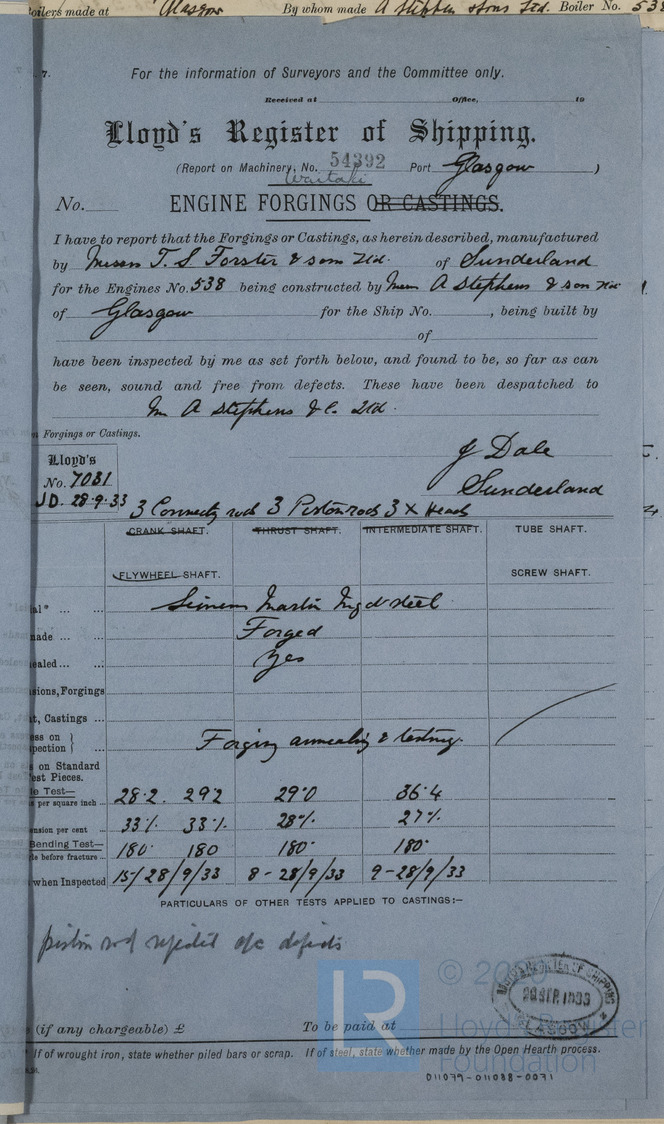 Boilers made at Glasgow By whom made A Stephen & Sons Ltd. Boiler No. 538
7.
For the information of Surveyors and the Committee only.
Received at Office, 19
Lloyd's Register of Shipping.
(Report on Machinery, No. 54392 Port Glasgow )
Waitaki
No. ENGINE FORGINGS OR CASTINGS.
I have to report that the Forgings or Castings, as herein described, manufactured
by Messrs T. S. Forster & sons Ltd. of Sunderland
for the Engines No. 538 being constructed by Messrs A Stephens & son Ltd
of Glasgow for the Ship No. , being built by
of
have been inspected by me as set forth below, and found to be, so far as can
be seen, sound and free from defects. These have been despatched to
A Stephens & Co. Ltd.
n Forgings or Castings.
Lloyd's
No. 7031
J.D. 28.9.33
J Dale
Sunderland
3 Connectg rods 3 Piston rods 3 X Heads
CRANK SHAFT. THRUST SHAFT. INTERMEDIATE SHAFT. TUBE SHAFT.
FLYWHEEL SHAFT. SCREW SHAFT.
ial* ... ... Siemens Martin Ingot steel
made ... ... Forged
ealed ... ... Yes
sions, Forgings
t, Castings ...
ess on
pection } ... Forging annealing & testing.
s on Standard
est Pieces.
le Test—
s per square inch ... 28.2 29.2 29.0 36.4
ension per cent ... 33% 33% 28% 27%
Bending Test—
le before fracture ... 180° 180 180° 180°
when Inspected 15/28/9/33 8-28/9/33 9-28/9/33
PARTICULARS OF OTHER TESTS APPLIED TO CASTINGS:—
piston rod rejected a/c defects
LLOYD'S REGISTER OF SHIPPING
29 SEP 1933
GLASGOW
LR
Lloyd's Register
Foundation
(if any chargeable) £ To be paid at
* If of wrought iron, state whether piled bars or scrap. If of steel, state whether made by the Open Hearth process.
011079-011088-0071